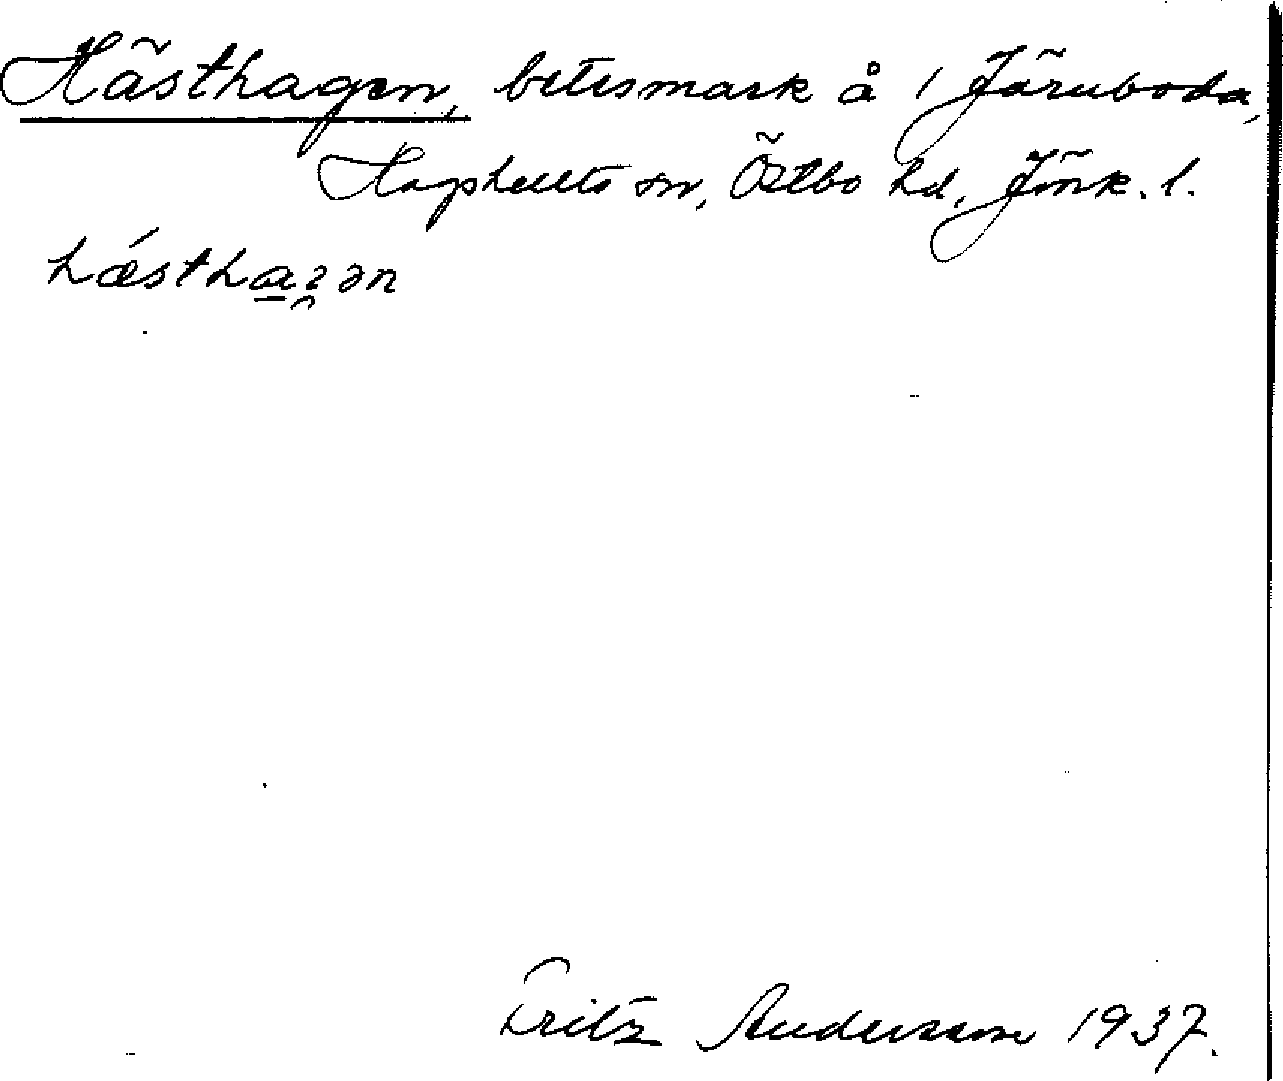 Hästhagen, betesmark å 1 Järnboda,
Hagshults sn, Östbo hd, Jönk. l.
hǽsthaɡən
Fritz Andersson 1937.